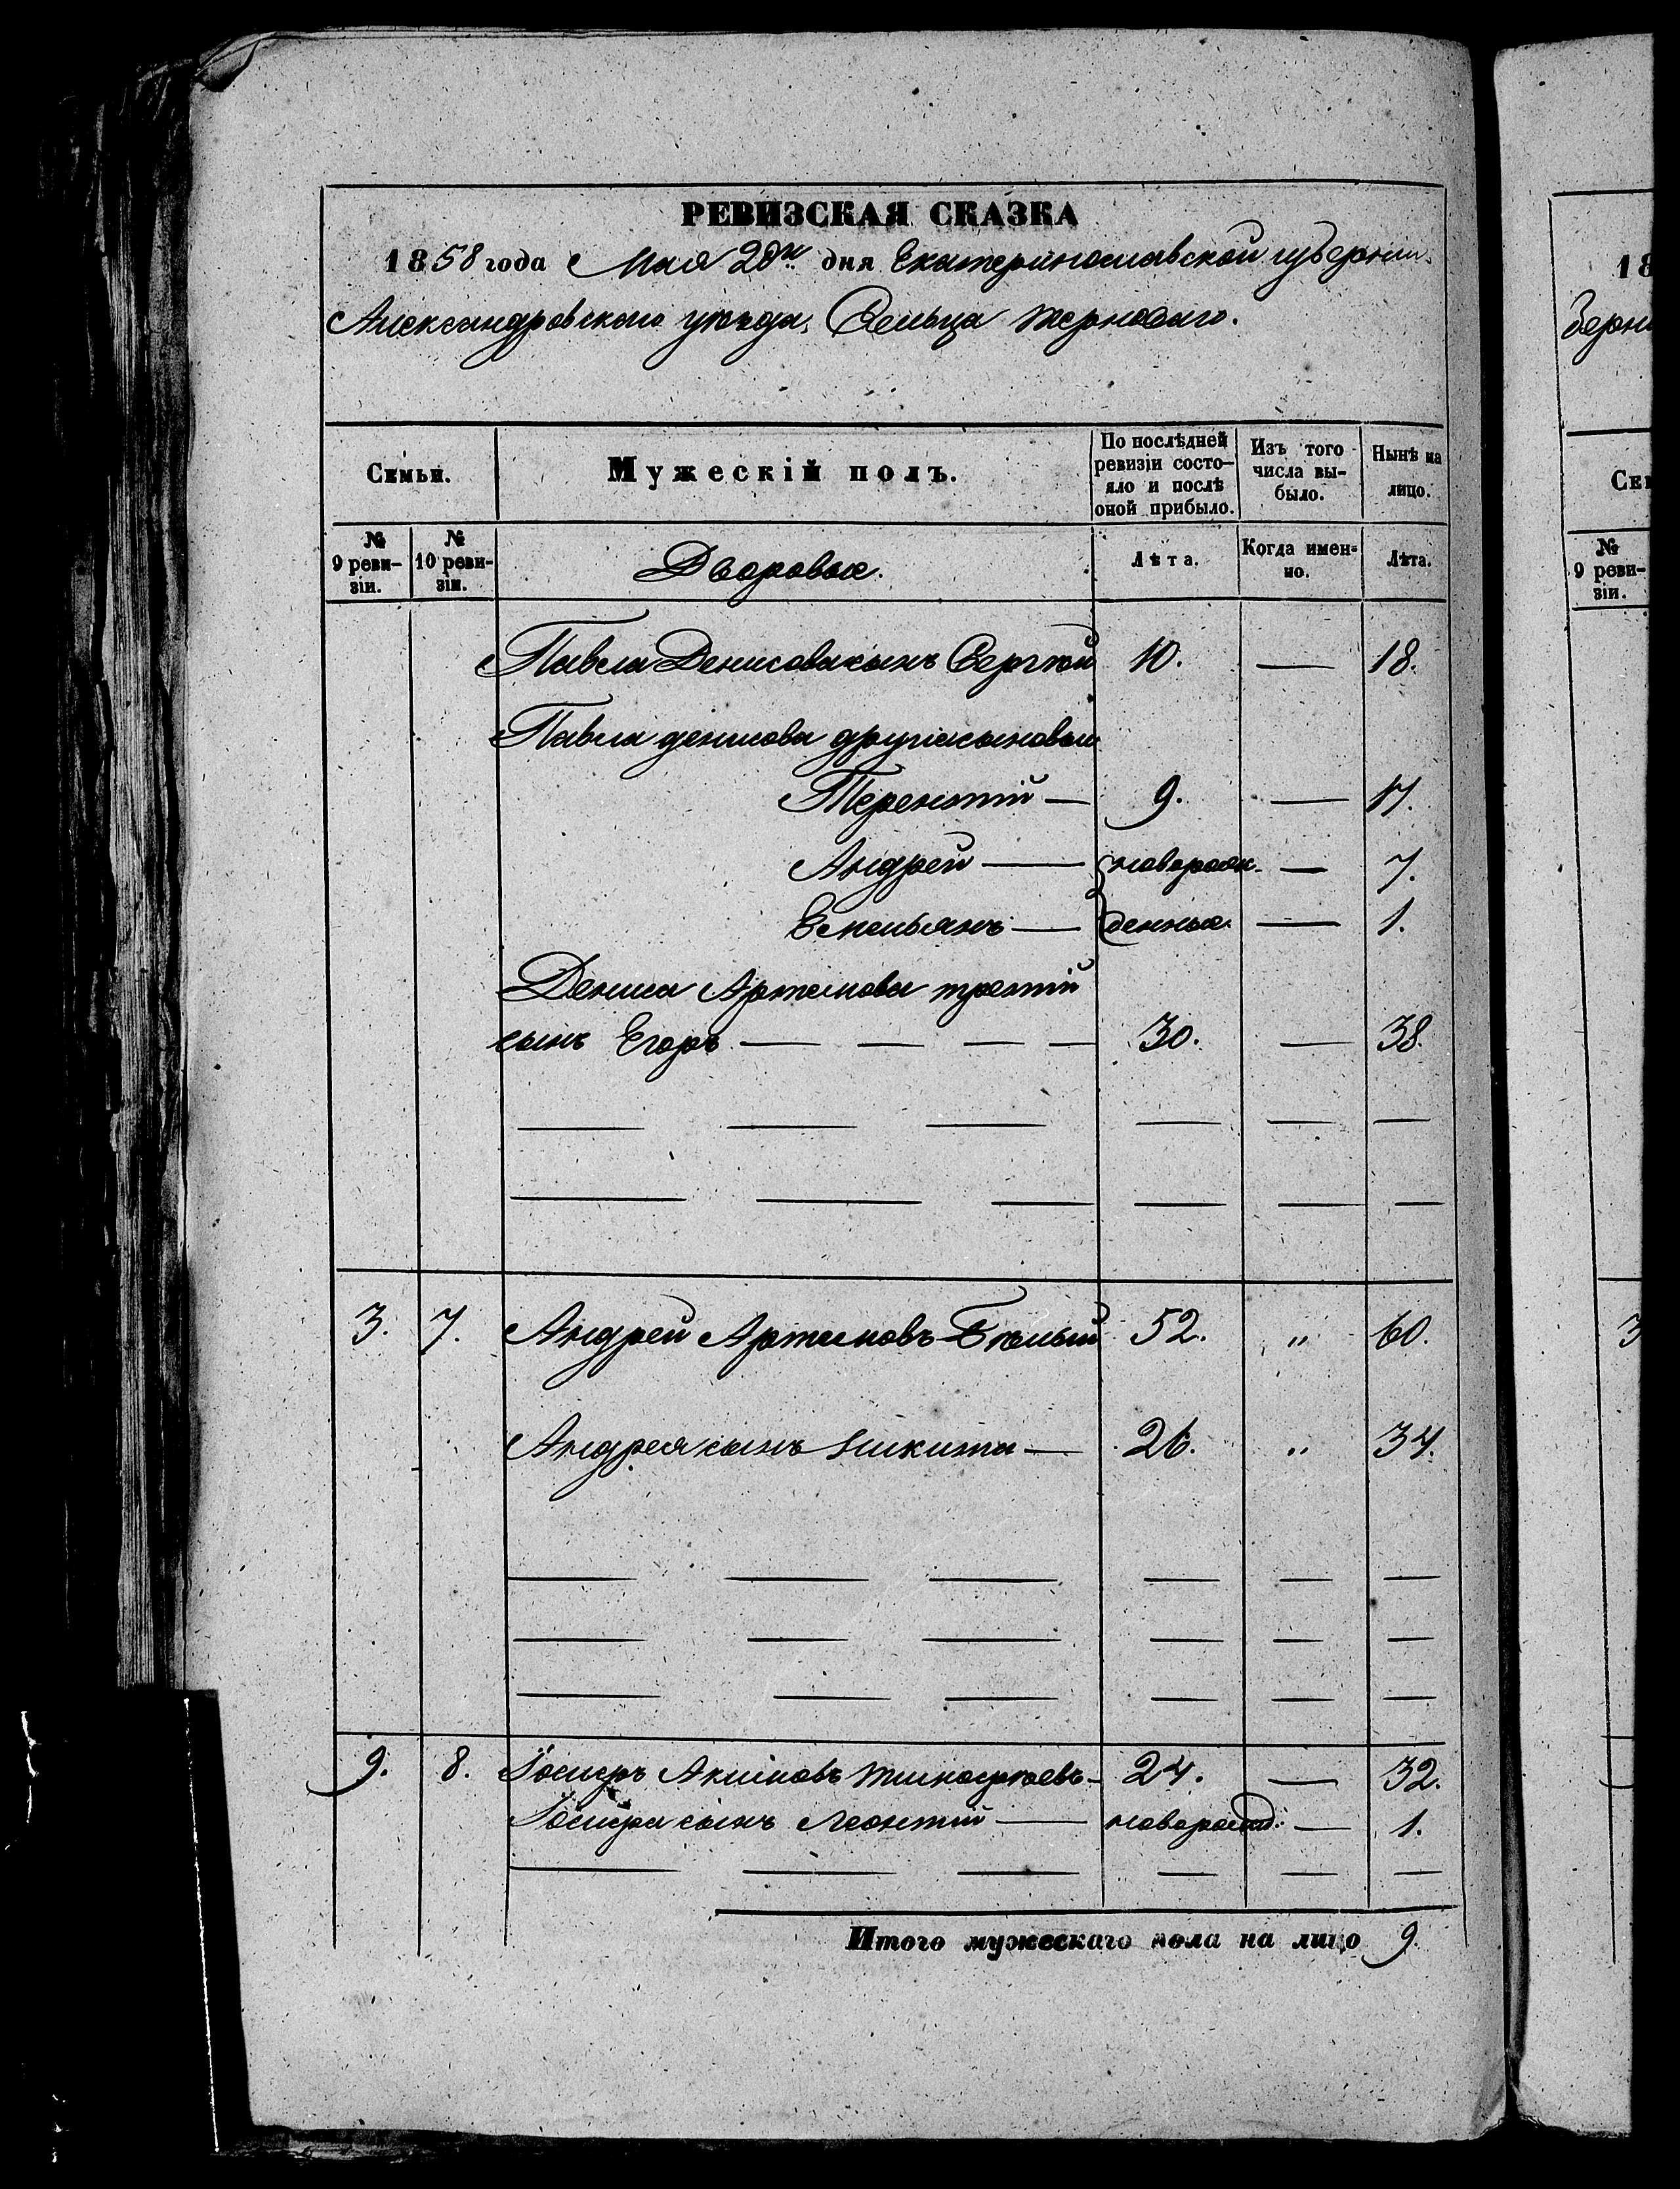 РЕВИЗСКАЯ СКАЗКА
1858 года Мая 2дн. дня Екатеринославской губернии.
Александровского уѣзда, Сельца Терноваго.
Семьи.
Мужескій полъ.
По послѣдней ревизіи состо-
яло и послѣ оной прибыло.
Изъ того числа вы-
было.
Нынѣ на лицо.
№ 9 реви-
зіи.
№ 10 реви-
зіи.
Дворовые.
Лѣта.
Когда имен-
но.
Лѣта.
Павла Денисова сынъ Сергѣй 10. — 18.
Павла денисова другіе сыновья
Терентій — 9. — 17.
Андрей — новорож- — 7.
Емельянъ — денные. — 1.
Дениса Артемова третій
сынъ Егоръ — — — — 30. — 38.
3. 7. Андрей Артемовъ Бѣлый 52. " 60.
Андрея сынъ Никита — 26. " 34.
9. 8. Акимовъ Тимофѣевъ — 24. — 32.
сынъ Леонтій — новорожд: — 1.
Итого мужескаго пола на лицо 9.
18
Сем
№
9 реви-
зіи.
3